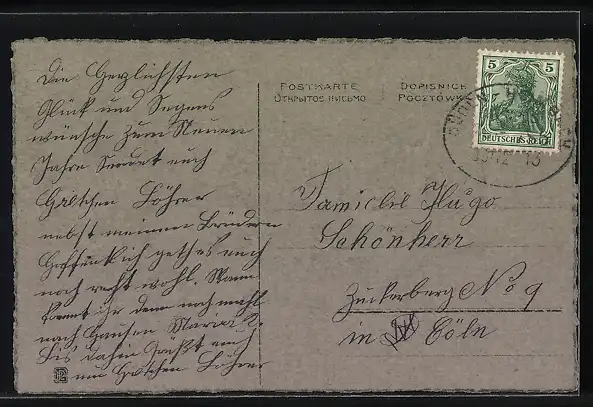 Die Herzlichsten
Glück und Segens
wünsche zum Neuen
Jahre Sendet euch
Gretchen Löhrer
nebst meinen Brüdern
Hoffentlich geht es euch
noch recht wohl. Wann
kommt ihr denn noch mahl
nach Hausen Maria
bis dahin Grüßt euch
Löhrer
POSTKARTE
Открытое письмо
DOPISNICE
POCZTÓWKA
5 5
DEUTSCHES REICH
12 13
Familie Hugo
Schönherr
Zuckerberg No 9
in Cöln